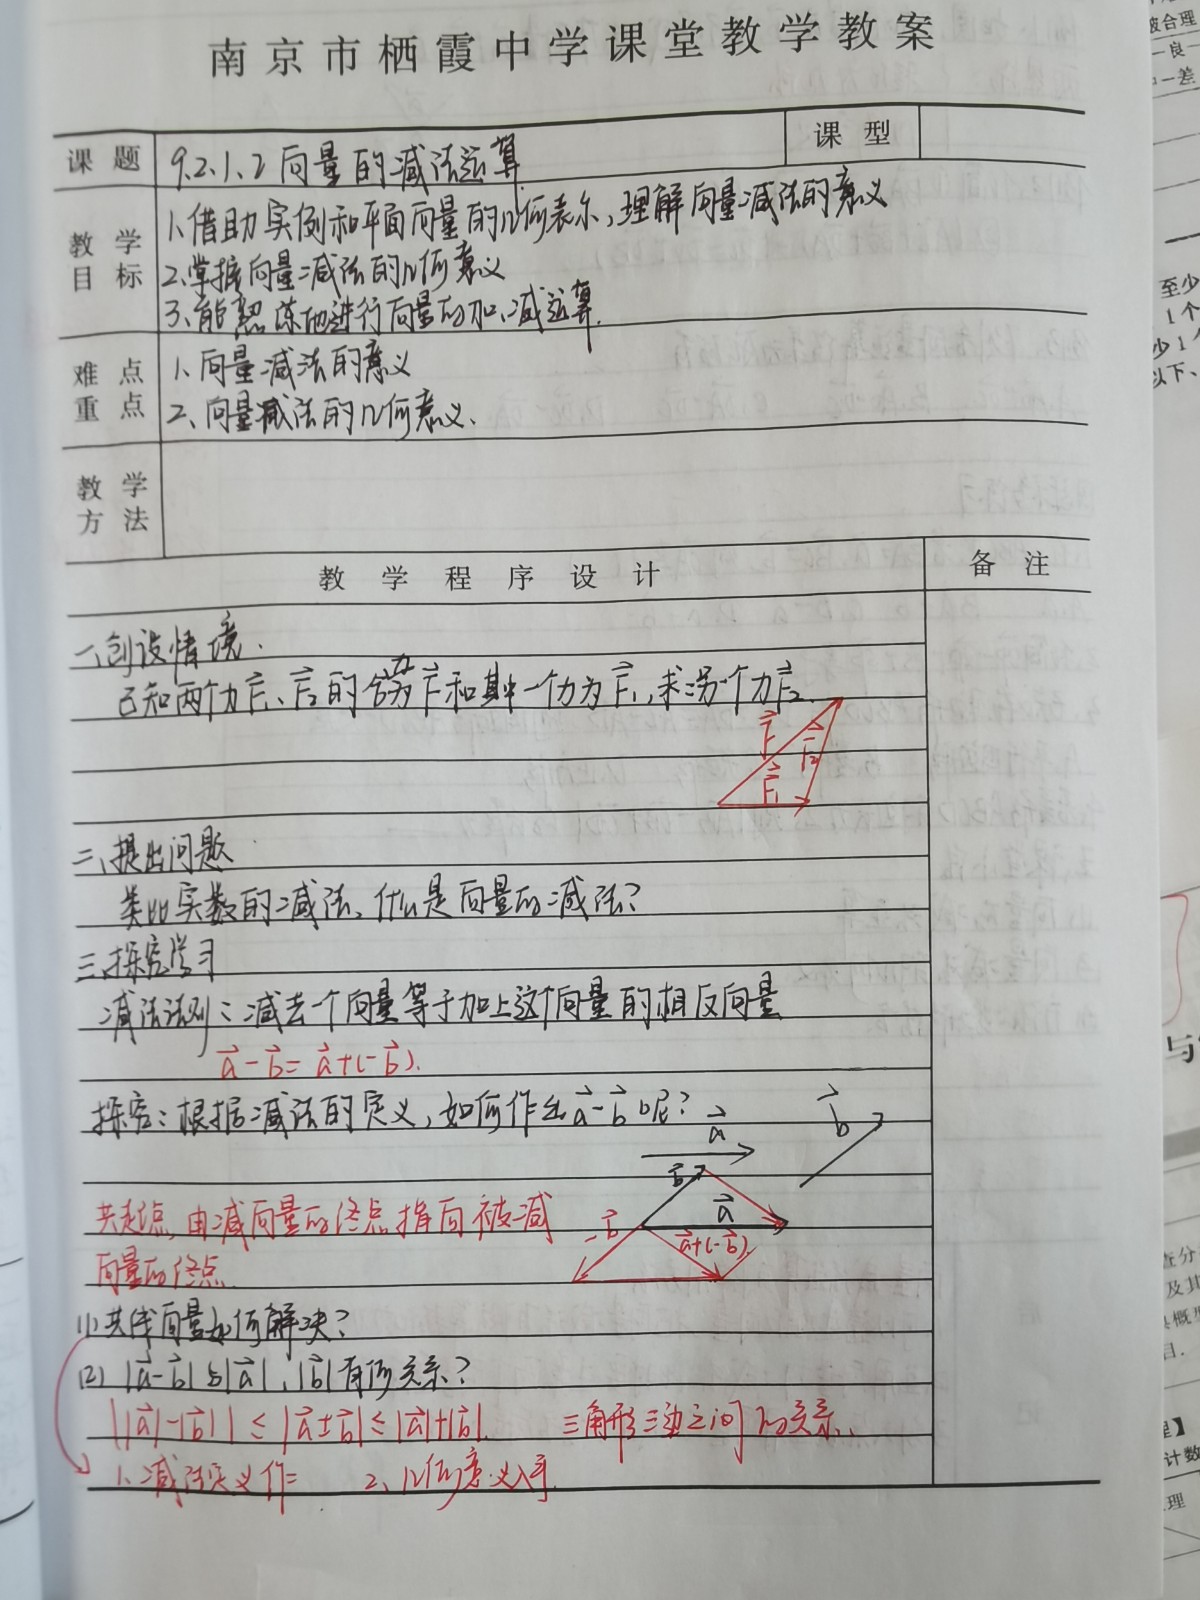 南京市栖霞中学课堂教学教案
课题 9.2.1.2 向量的减法运算 课型
教学目标
1、借助实例和平面向量的几何表示,理解向量减法的意义
2、掌握向量减法的几何意义
3、能熟练地进行向量的加、减运算.
难点重点
1、向量减法的意义
2、向量减法的几何意义、
教学方法
教学程序设计 备注
一、创设情境.
已知两个力F⃗₁、F⃗₂的合力为F⃗和其中一个力为F⃗₁,求另一个力F⃗₂.
F⃗ F⃗₂
F⃗₁
二、提出问题
类比实数的减法、什么是向量的减法?
三、探究学习
减法法则:减去一个向量等于加上这个向量的相反向量
a⃗-b⃗=a⃗+(-b⃗).
探究:根据减法的定义,如何作出a⃗-b⃗呢?
a⃗ b⃗
b⃗
共起点,由减向量的终点指向被减
向量的终点.
-b⃗ a⃗
a⃗+(-b⃗)
(1)共线向量如何解决?
(2) |a⃗-b⃗|与|a⃗|,|b⃗|有何关系?
||a⃗|-|b⃗||≤|a⃗±b⃗|≤|a⃗|+|b⃗|. 三角形三边之间的关系.
1、减法定义作 2、几何意义
被合理
一良一
一差
至少
1个
少1个
以下、
与
查分
及其
概
目.
理】
计数
理